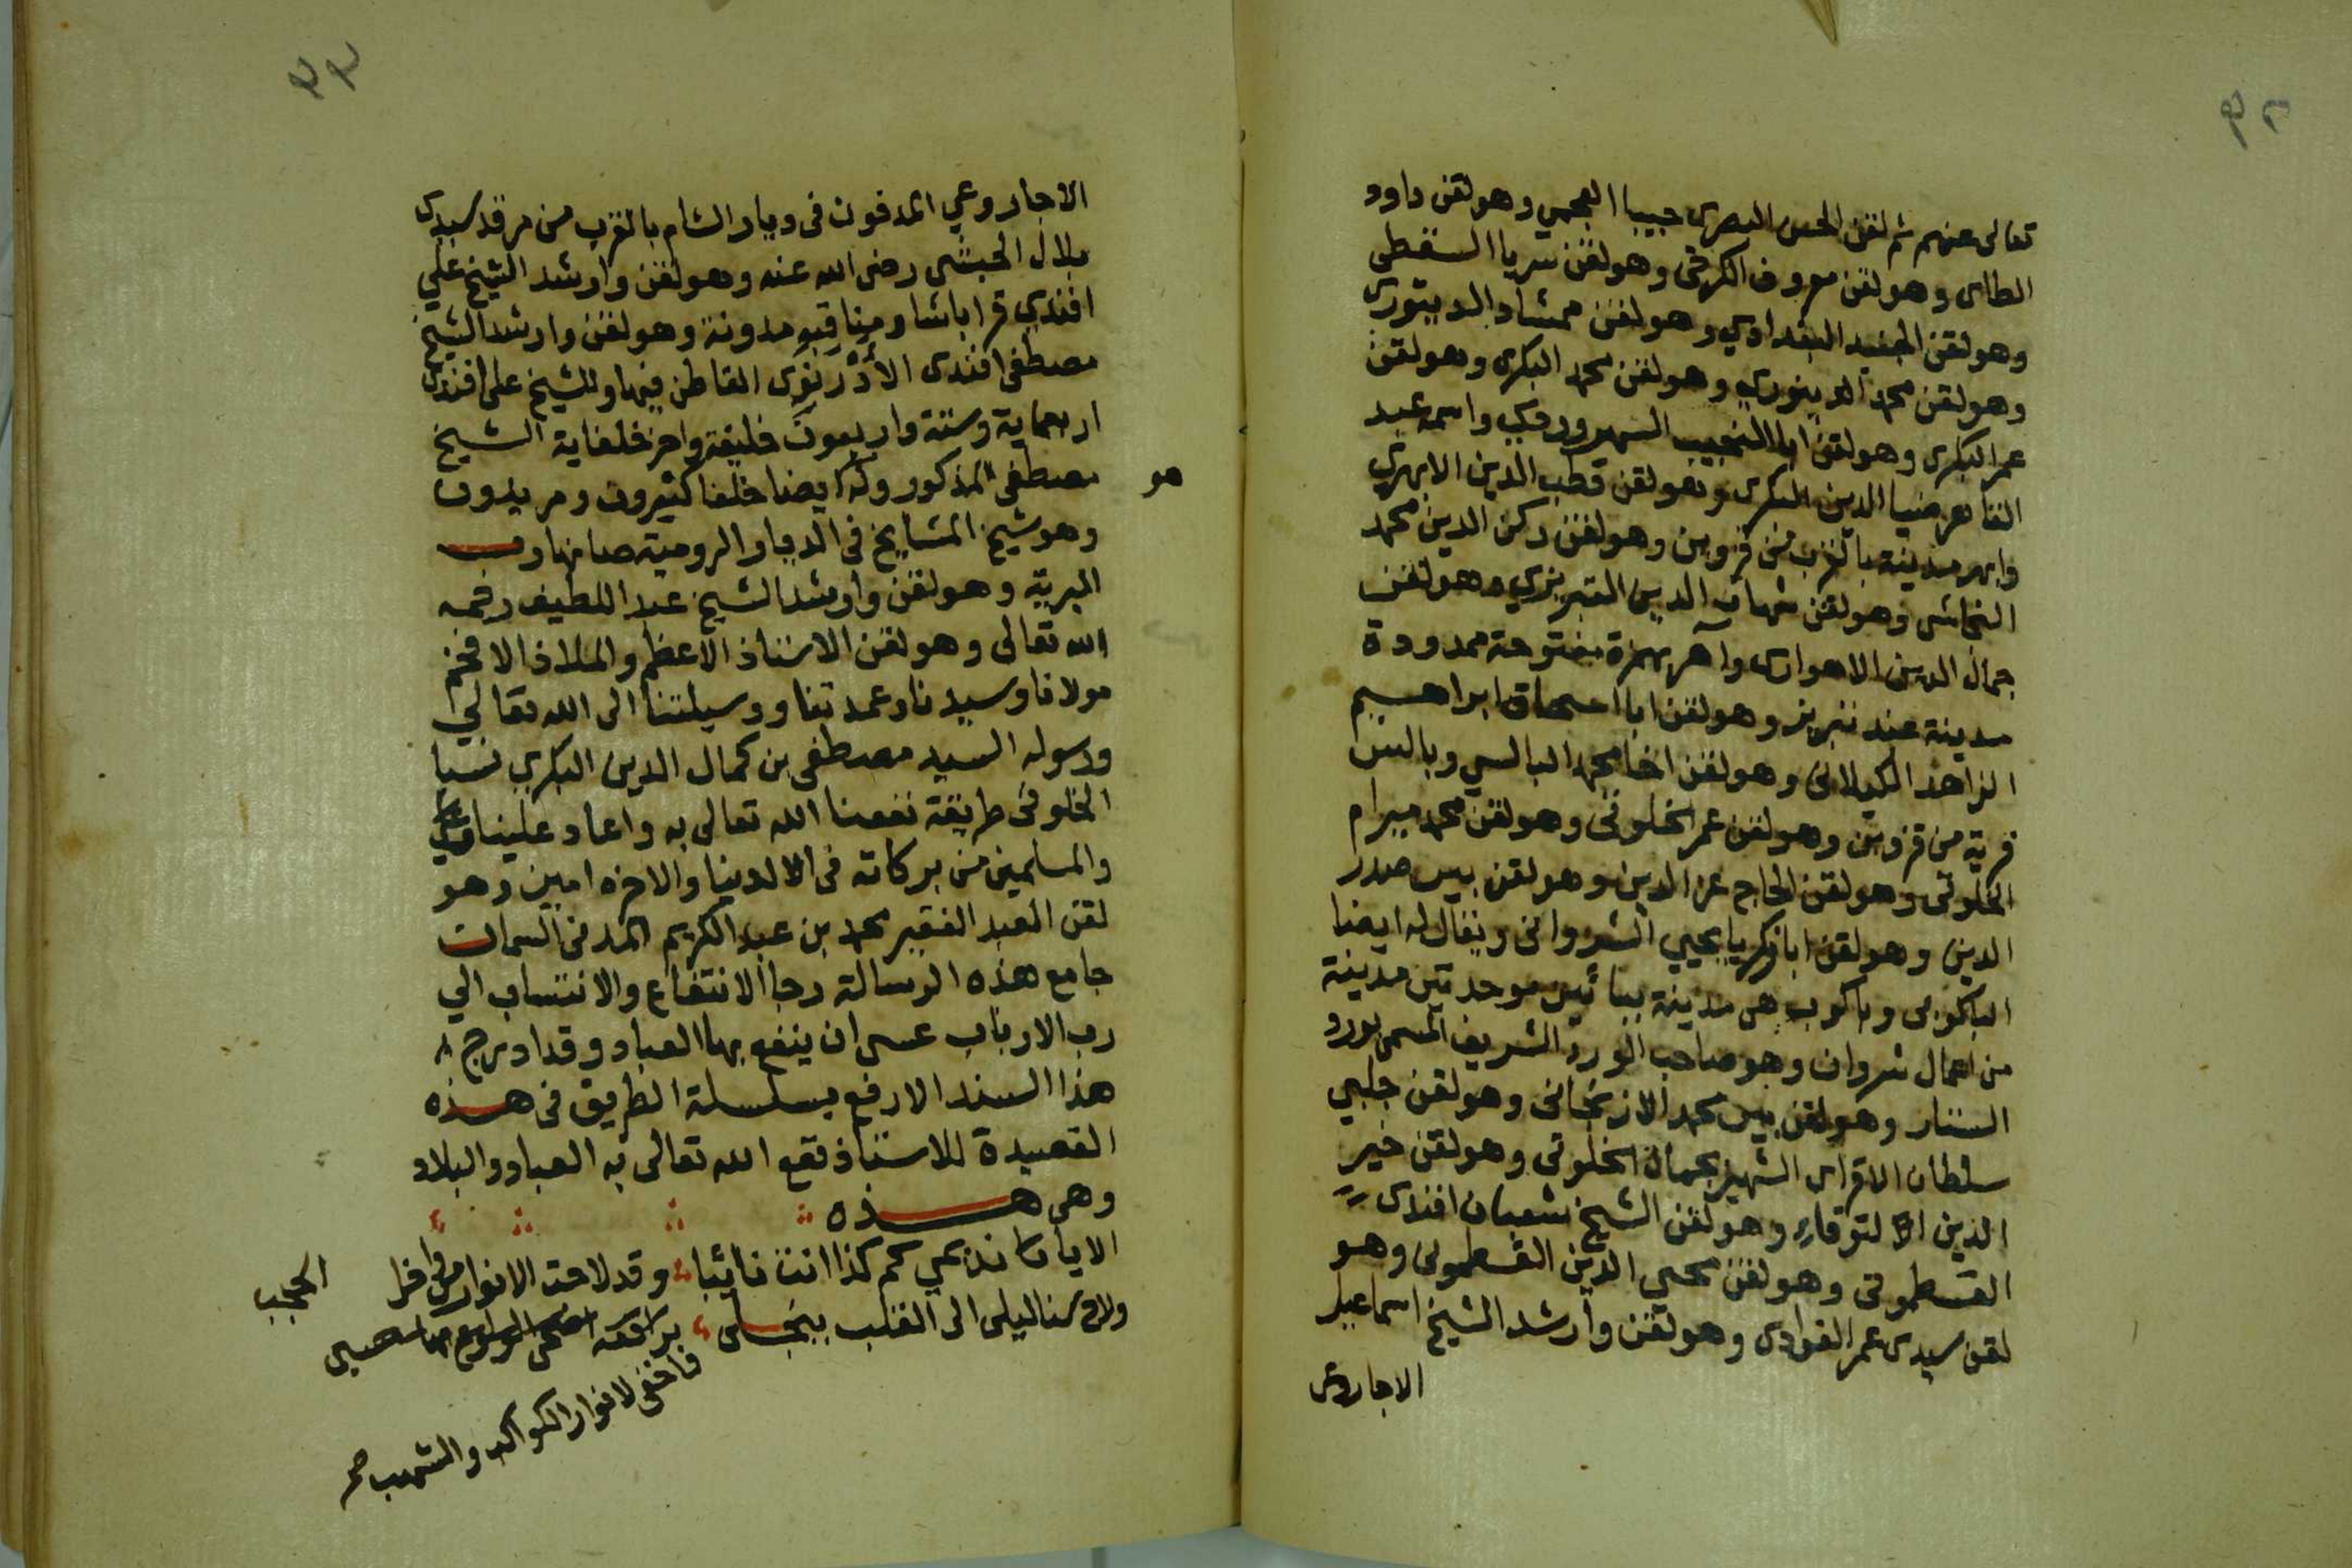 ٩٢
تعالى عنهم ثم لقن الحسن البصرى حبيبا العجمي وهو لقن داوود
الطاى وهو لقن معروف الكرخى وهو لقن سريا السقطى
وهو لقن الجنيد البغدادي وهو لقن ممشاد الدينورى
وهو لقن محمد الدينوري وهو لقن محمد البكرى وهو لقن
عمر البكرى وهو لقن ابا النجيب السهروردي واسمه عبد
القاهر ضيا الدين البكرى وهو لقن قطب الدين الابهري
وابهر مدينة بالقرب من قزوين وهو لقن ركن الدين محمد
النجاشى وهو لقن شهاب الدين التبريزي وهو لقن
جمال الدين الاهوازى وآهر بهمزة مفتوحة ممدودة
مدينة عند تبريز وهو لقن ابا اسحاق ابراهيم
الزاهد الكيلانى وهو لقن اخا محمد البالسي وبالس
قرية من قزوين وهو لقن عمر الخلوتى وهو لقن محمد ميرام
الخلوتى وهو لقن الحاج عز الدين وهو لقن بير صدر
الدين وهو لقن ابا زكريا يحيي الشروانى ويقال له ايضا
الباكوبى وباكوبه هى مدينة ببائين موحدتين مدينة
من اعمال شروان وهو صاحب الورد الشريف المسمى بورد
الستار وهو لقن بير محمد الازنجانى وهو لقن جلبي
سلطان الاقراى الشهير بجمال الخلوتى وهو لقن خير
الدين التوقادي وهو لقن الشيخ شعبان افندى
القسطمونى وهو لقن محيي الدين القسطمونى وهو
لقن سيدى عمر الفوادى وهو لقن وارشد الشيخ اسماعيل
الاجاروعى
٩٣
الاجاروعي المدفون فى ديار الشام بالقرب من مرقد سيدى
بلال الحبشى رضى الله عنه وهو لقن وارشد الشيخ علي
افندي قرا باشا ومناقبه مدونة وهو لقن وارشد الشيخ
مصطفى افندى الأدرنوى القاطن فيها وللشيخ على افندى
اربعماية وستة واربعون خليفة واخر خلفاية الشيخ
هو
مصطفى المذكور وله ايضا خلفا كثيرون ومريدون
وهو شيخ المشايخ فى الديار الرومية صانها رب
البرية وهو لقن وارشد الشيخ عبد اللطيف رحمه
الله تعالى وهو لقن الاستاذ الاعظم والملاذ الافخم
مولانا وسيدنا وعمدتنا ووسيلتنا الى الله تعالي
ورسوله السيد مصطفى بن كمال الدين البكري نسبا
الخلوتى طريقة نفعنا الله تعالى به واعاد علينا
والمسلمين من بركاته فى الدنيا والاخره امين وهو
لقن العبد الفقير محمد بن عبد الكريم المدنى السمان
جامع هذه الرسالة رجا الانتفاع والانتساب الي
رب الارباب عسى ان ينفع بها العباد وقد ادرج
هذا السند الارفع بسلسلة الطريق فى هذه
القصيدة للاستاذ نفع الله تعالى به العباد والبلاد
وهى هذه
الا يا نديمي كم كذا انت نائبا وقد لاحت الانوار من داخل الحجب
ولاح سنا ليلى الى القلب ينجلى
فاخفى لانوار الكواكب والشهب صح